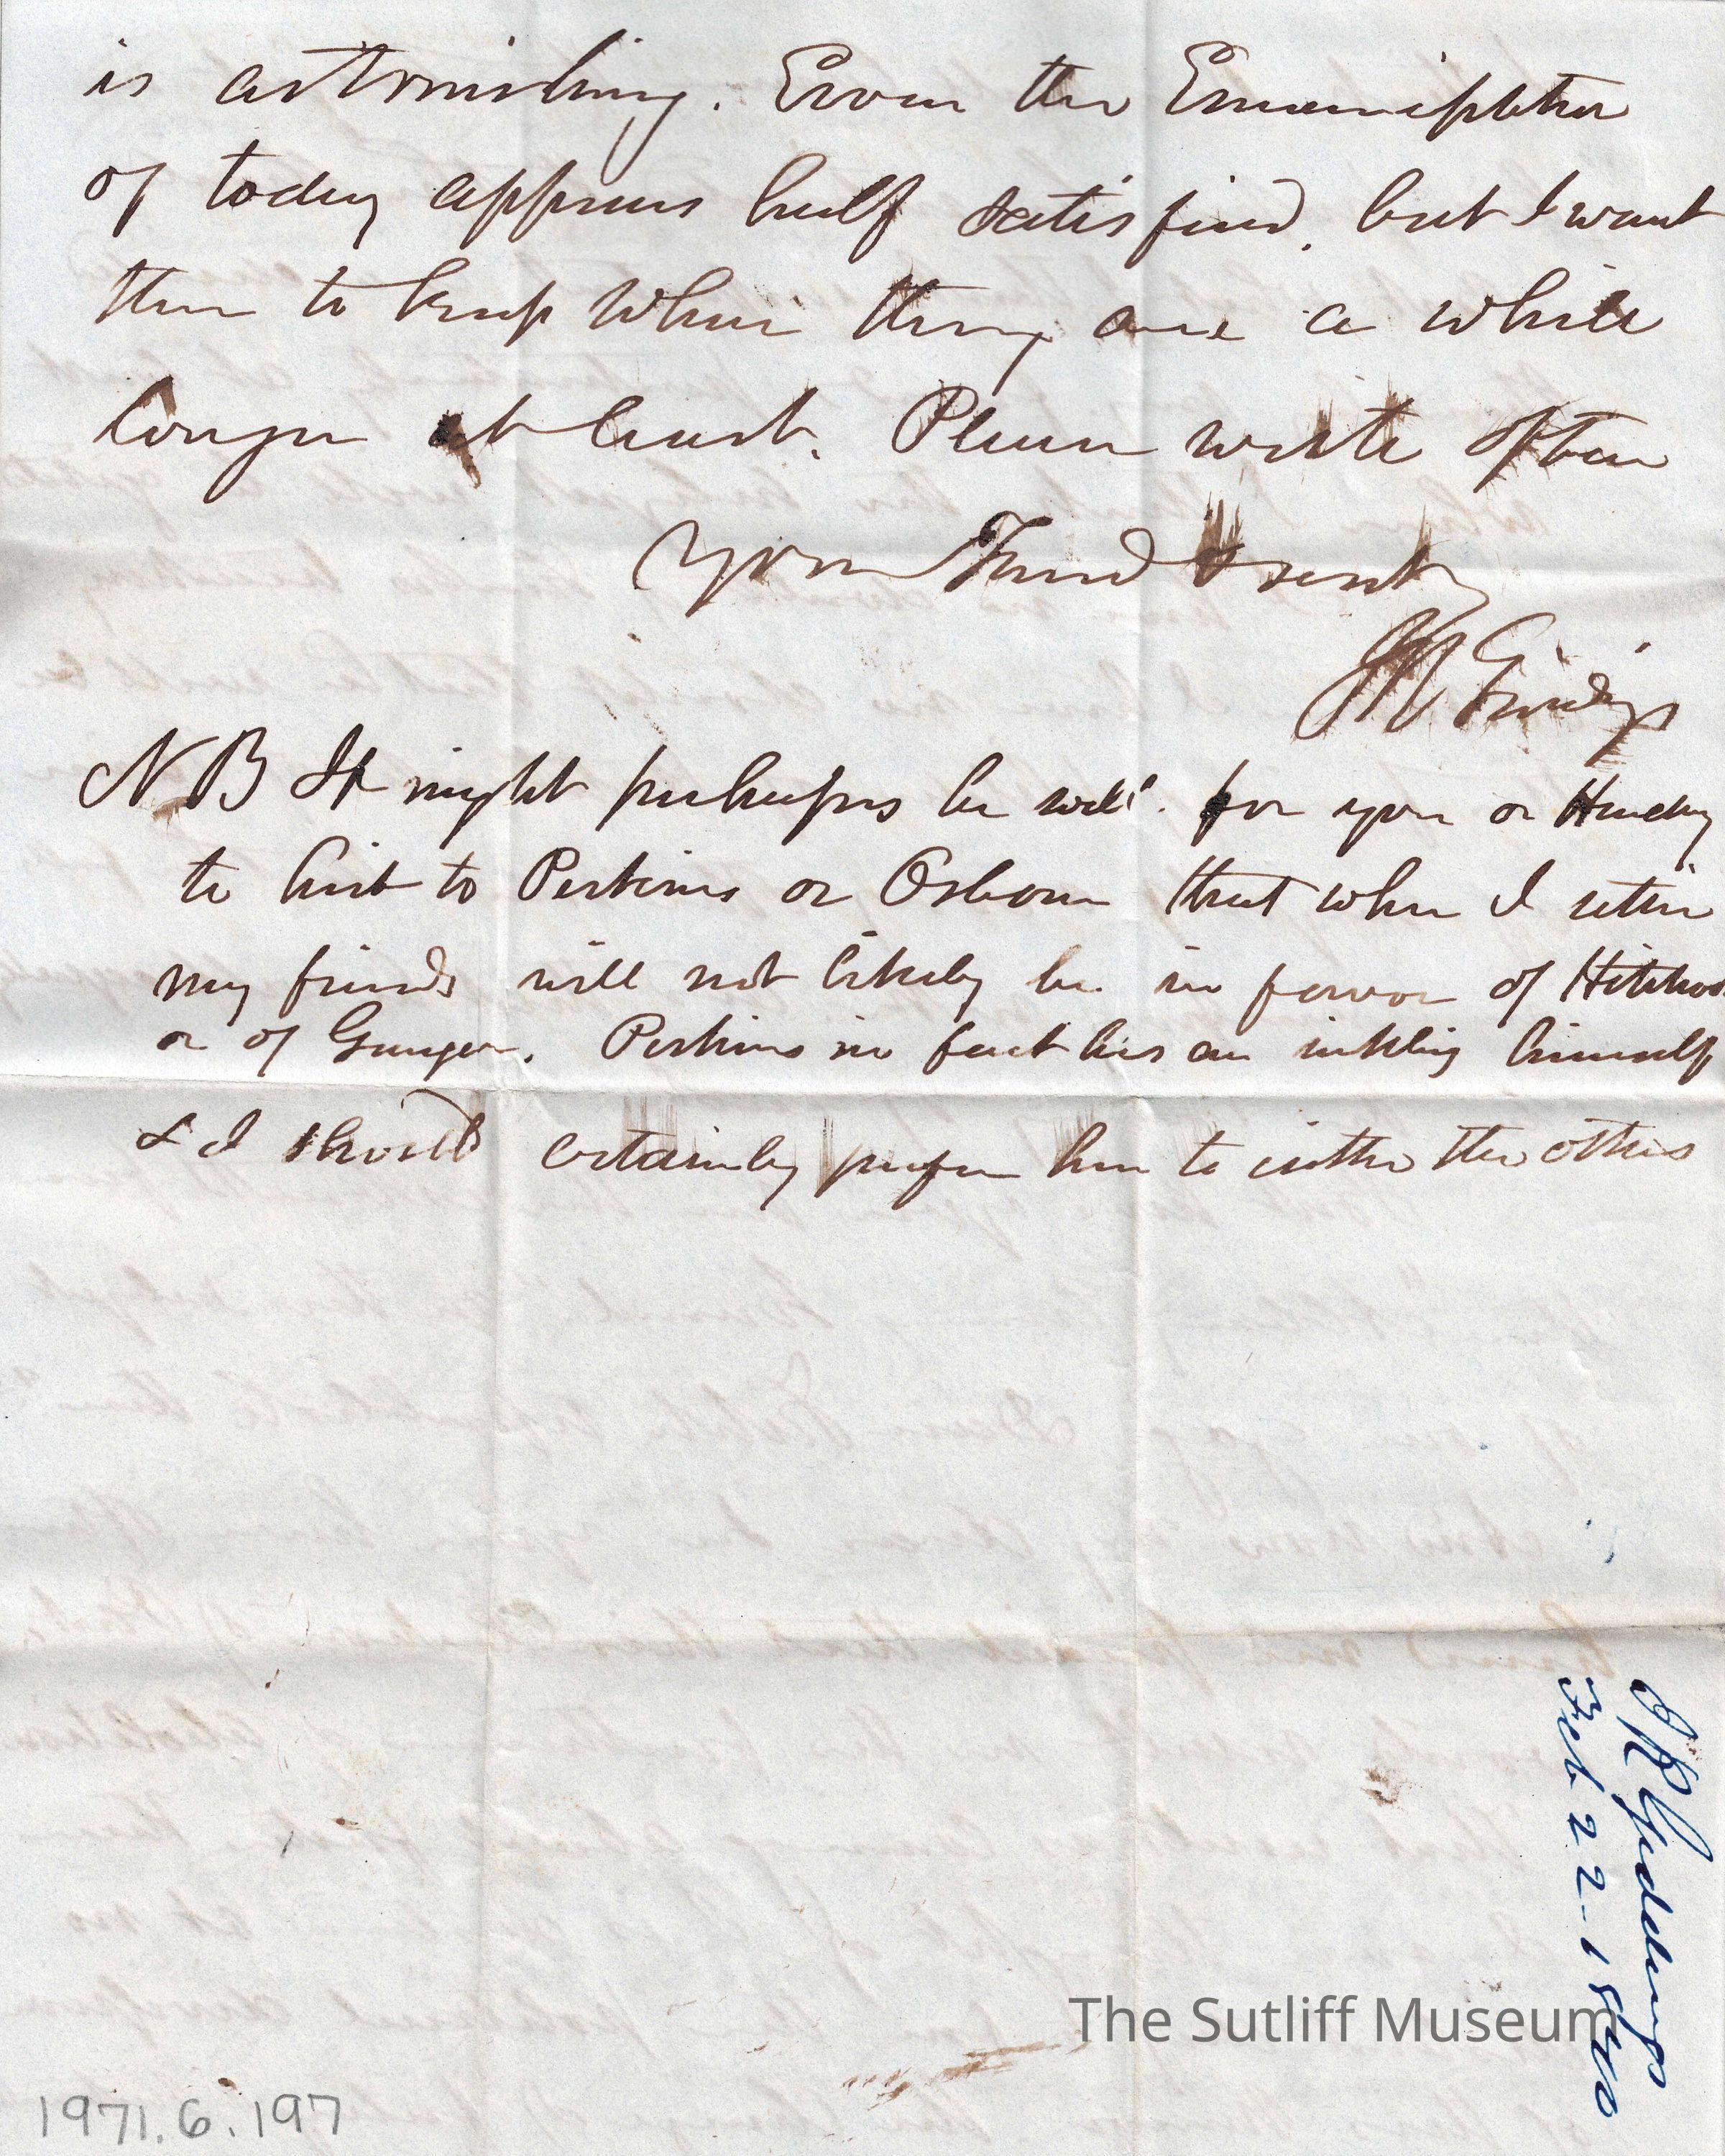 is astonishing. Even the Emancipator
of today appears half satisfied, but I want
them to keep where they are a while
longer at least. Please write often
Your Friend
J R Giddings
NB It might perhaps be well for you or
to hint to Perkins or Osborn that when I retire
my friends will not likely be in favor of
or of Granger. Perkins in fact has an inkling himself
& I should certainly prefer him to either the others
J R Giddings
Feb 22-18
The Sutliff Museum
1971.6.197